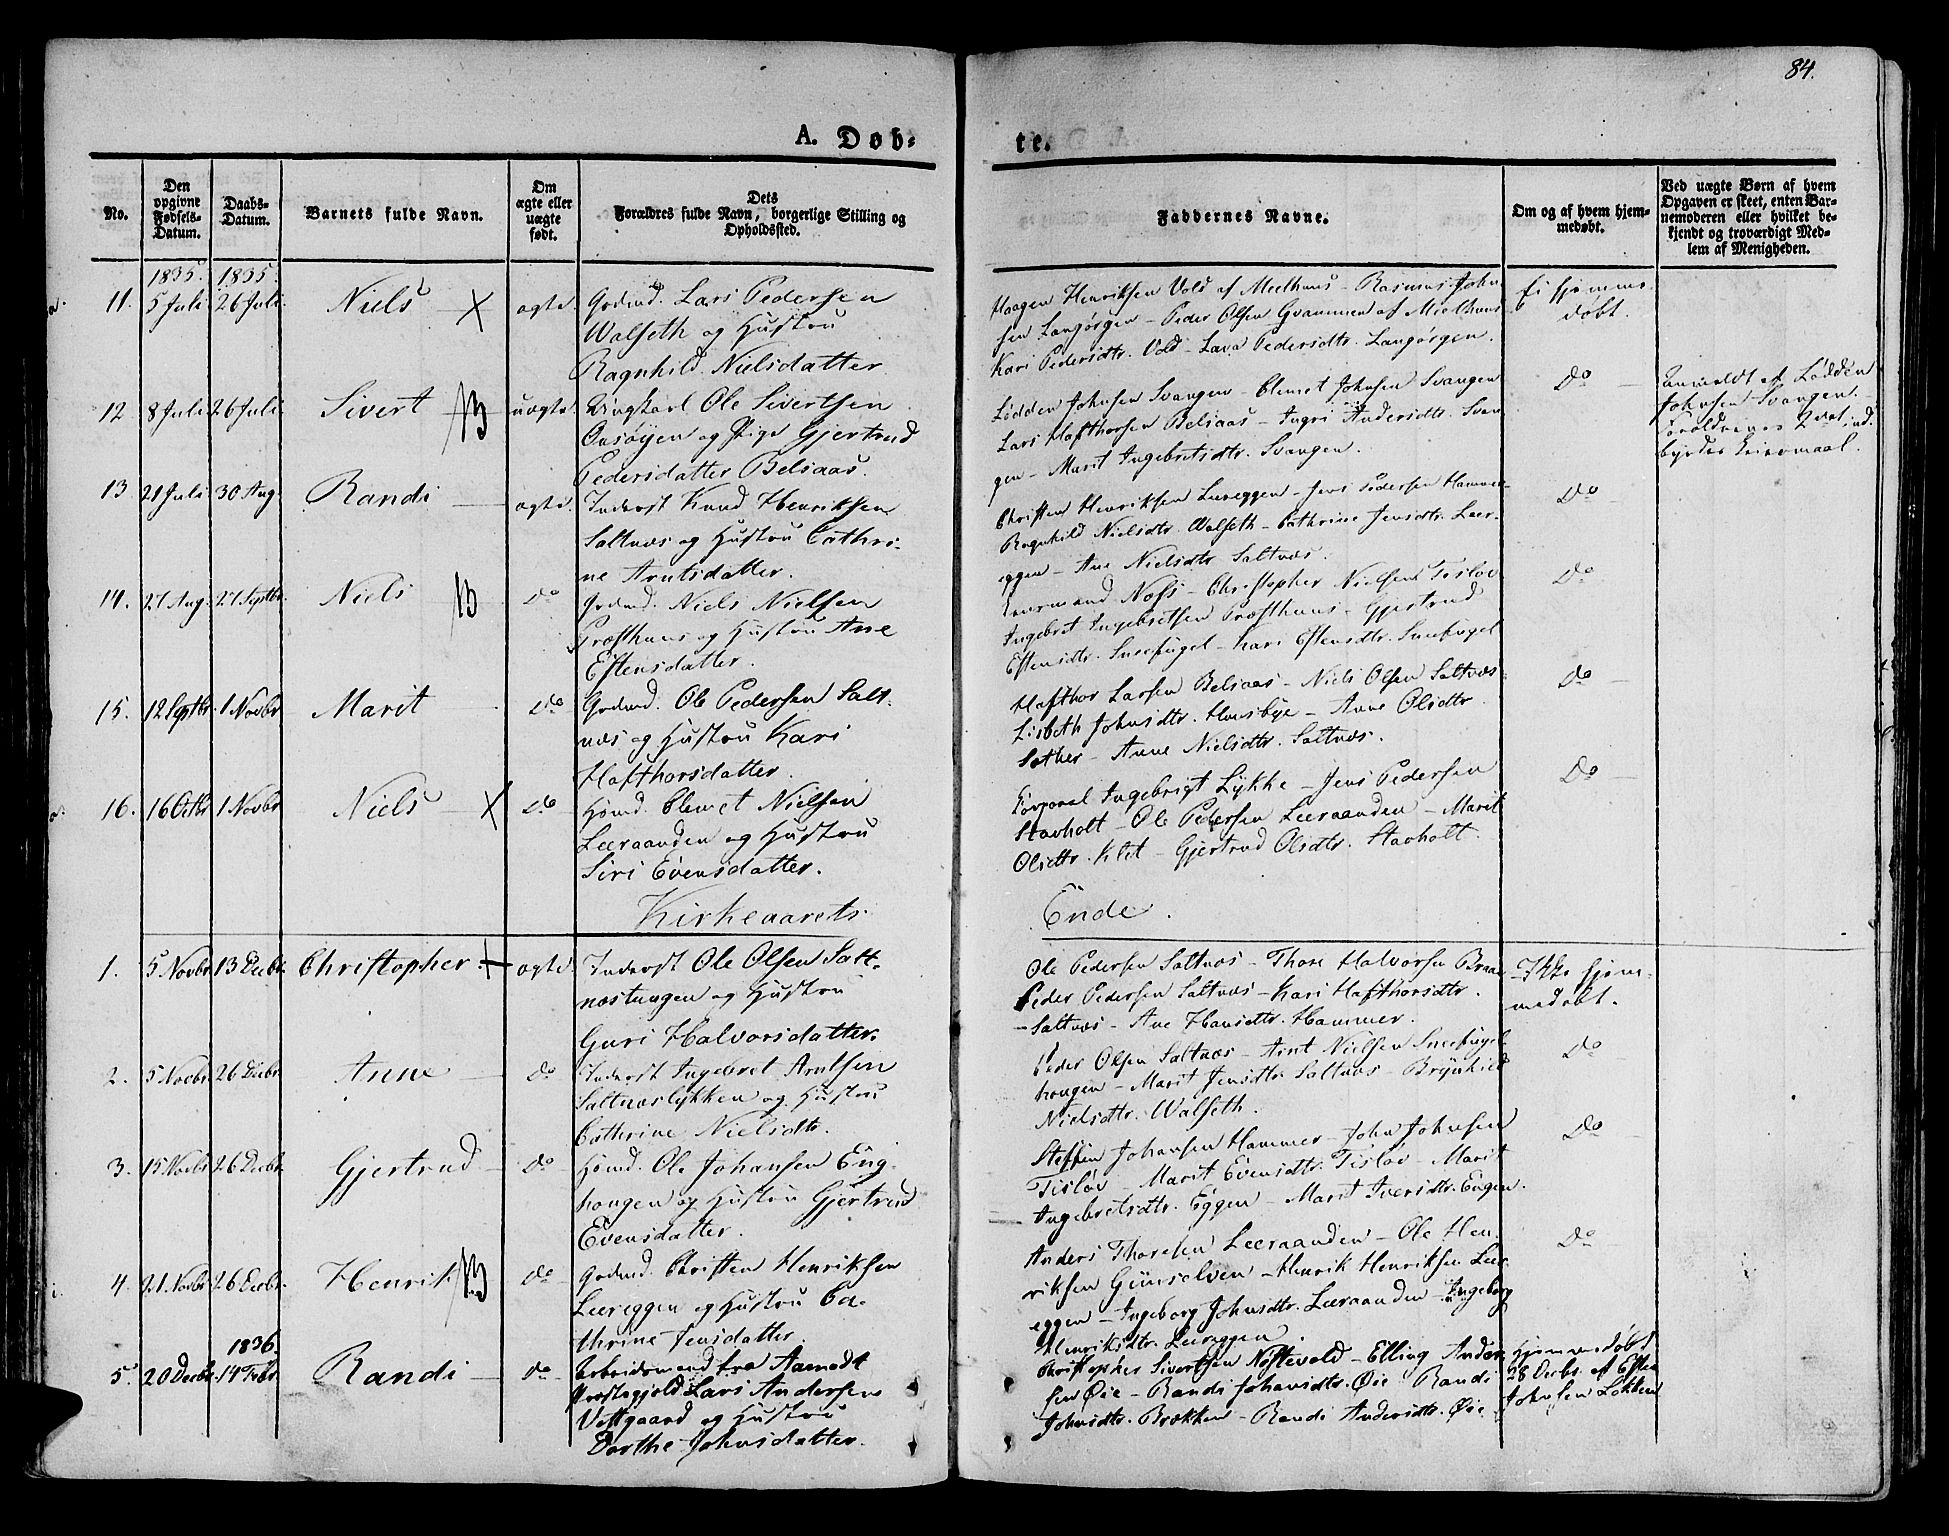 84.
A. Døb-
te.
No.
Den opgivne Fødsels-Datum.
Daabs-Datum.
Barnets fulde Navn.
Om ægte eller uægte født.
Dets Forældres fulde Navn, borgerlige Stilling og Opholdssted.
Faddernes Navne.
Om og af hvem hjemmedøbt.
Ved uægte Børn af hvem Opgaven er skeet, enten Barnemoderen eller hvilket bekjendt og troværdigt Medlem af Menigheden.
1835. 1835.
11. 5 Juli 26 Juli. Niels X ægte. Godmd. Lars Pedersen
Walseth og Hustru
Ragnhild Nielsdatter
Haagen Henriksen Vold af Meelhuus - Rasmus John-
sen Langørgen - Peder Olsen Gvammen af Meelhuus
Kari Pedersdtr. Vold - Lava Pedersdtr. Langørgen.
Ei hjemme-
døbt.
12 8 Juli 26 Juli. Sivert B uægte. Ungkarl Ole Sivertsen
Onsøyen og Pige Gjertrud
Pedersdatter Belsaas.
Lodden Johnsen Svangen - Clemet Johnsen Svangen
Lars Hafthorsen Belsaas - Ingri Andersdtr. Svan-
gen - Marit Ingebretsdtr. Svangen.
Do
Anmeldt af Lodden
Johnsen Svangen.
Forældrenes 2det ind-
byrdes Leiermaal.
13 21 Juli 30 Aug. Randi ægte. Inderst Knud Henriksen
Saltnæs og Hustru Cathri-
ne Arntsdatter.
Christen Henriksen Leereggen - Jens Pedersen Hammer
Ragnhild Nielsdtr. Walseth - Cathrine Jensdtr. Leer-
eggen - Ane Nielsdtr Saltnæs.
Do
14. 27 Aug. 27 Septbr. Niels B Do Godmd. Niels Nielsen
Præsthuus og Hustru Ane
Estensdatter.
Lensmand Næss - Christopher Nielsen Tisløv
Ingebret Ingebretsen Præsthuus - Gjertrud
Estensdtr. Sneefugel - Kari Estensdtr. Sneefugel
Do
15. 12 Septbr. 1 Novbr Marit Do Godmd. Ole Pedersen Salt-
næs og Hustru Kari
Hafthorsdatter.
Hafthor Larsen Belsaas - Niels Olsen Saltnæs
Lisbeth Johnsdtr. Huusbye - Anne Olsdtr.
Sother - Anne Nielsdtr. Saltnæs.
Do
16. 16 Octbr 1 Novbr Niels X Do Hsmd. Clemet Nielsen
Leeraanden og Hustru
Siri Evensdatter.
Corporal Ingebrigt Lykke - Jens Pedersen
Stavholt - Ole Pedersen Leeraanden - Marit
Olsdtr. Klet - Gjertrud Olsdtr. Stavholt.
Do
Kirkeaarets
Ende.
1. 5 Novbr 13 Decbr. Christopher. + ægte. Inderst Ole Olsen Salt-
næstungen og Hustru
Guri Halvorsdatter.
Ole Pedersen Saltnæs - Thore Halvorsen Braa
Peder Pedersen Saltnæs - Kari Hafthorsdtr.
Saltnæs - Ane Hansdtr. Hammer.
Ikke hjem-
medøbt.
2. 5 Novbr. 26 Decbr. Anne Do Inderst Ingebret Arntsen
Saltnæslykken og Hustru
Cathrine Nielsdtr.
Peder Olsen Saltnæs - Arnt Nielsen Sneefugel-
hougen - Marit Jensdtr. Saltnæs - Brynhild
Nielsdtr. Walseth.
Do
3. 15 Novbr 26 Decbr. Gjertrud Do Hsmd. Ole Johansen Eng-
hougen og Hustru Gjertrud
Evensdatter.
Steffen Johansen Hammer - John Johnsen
Tisløv - Marit Evensdtr. Tisløv - Marit
Ingebretsdtr. Eggen - Marit Iversdtr. Engen.
Do
4. 21. Novbr 26 Decbr. Henrik B Do Godmd. Christen Henriksen
Leereggen og Hustru Ca-
thrine Jensdatter.
Anders Thoresen Leeraanden - Ole Hen-
riksen Gimselven - Henrik Henriksen Leer-
eggen - Ingeborg Johnsdtr. Leeraanden - Ingeborg
Henriksdtr. Leereggen
Do
1836.
5. 20 Decbr. 14 Febr. Randi Do Arbeidsmand fra Aamodt
Præstegjeld Lars Andersen
Vestgaard og Hustru
Dorthe Johnsdatter.
Christopher Sivertsen Nostevold - Elling Ander-
sen Øie - Randi Johansdtr. Øie - Randi
Johnsdtr. Brækken - Randi Andersdtr. Øie
Hjemmedøbt
28 Decbr. af Esten
Johnsen Løkken